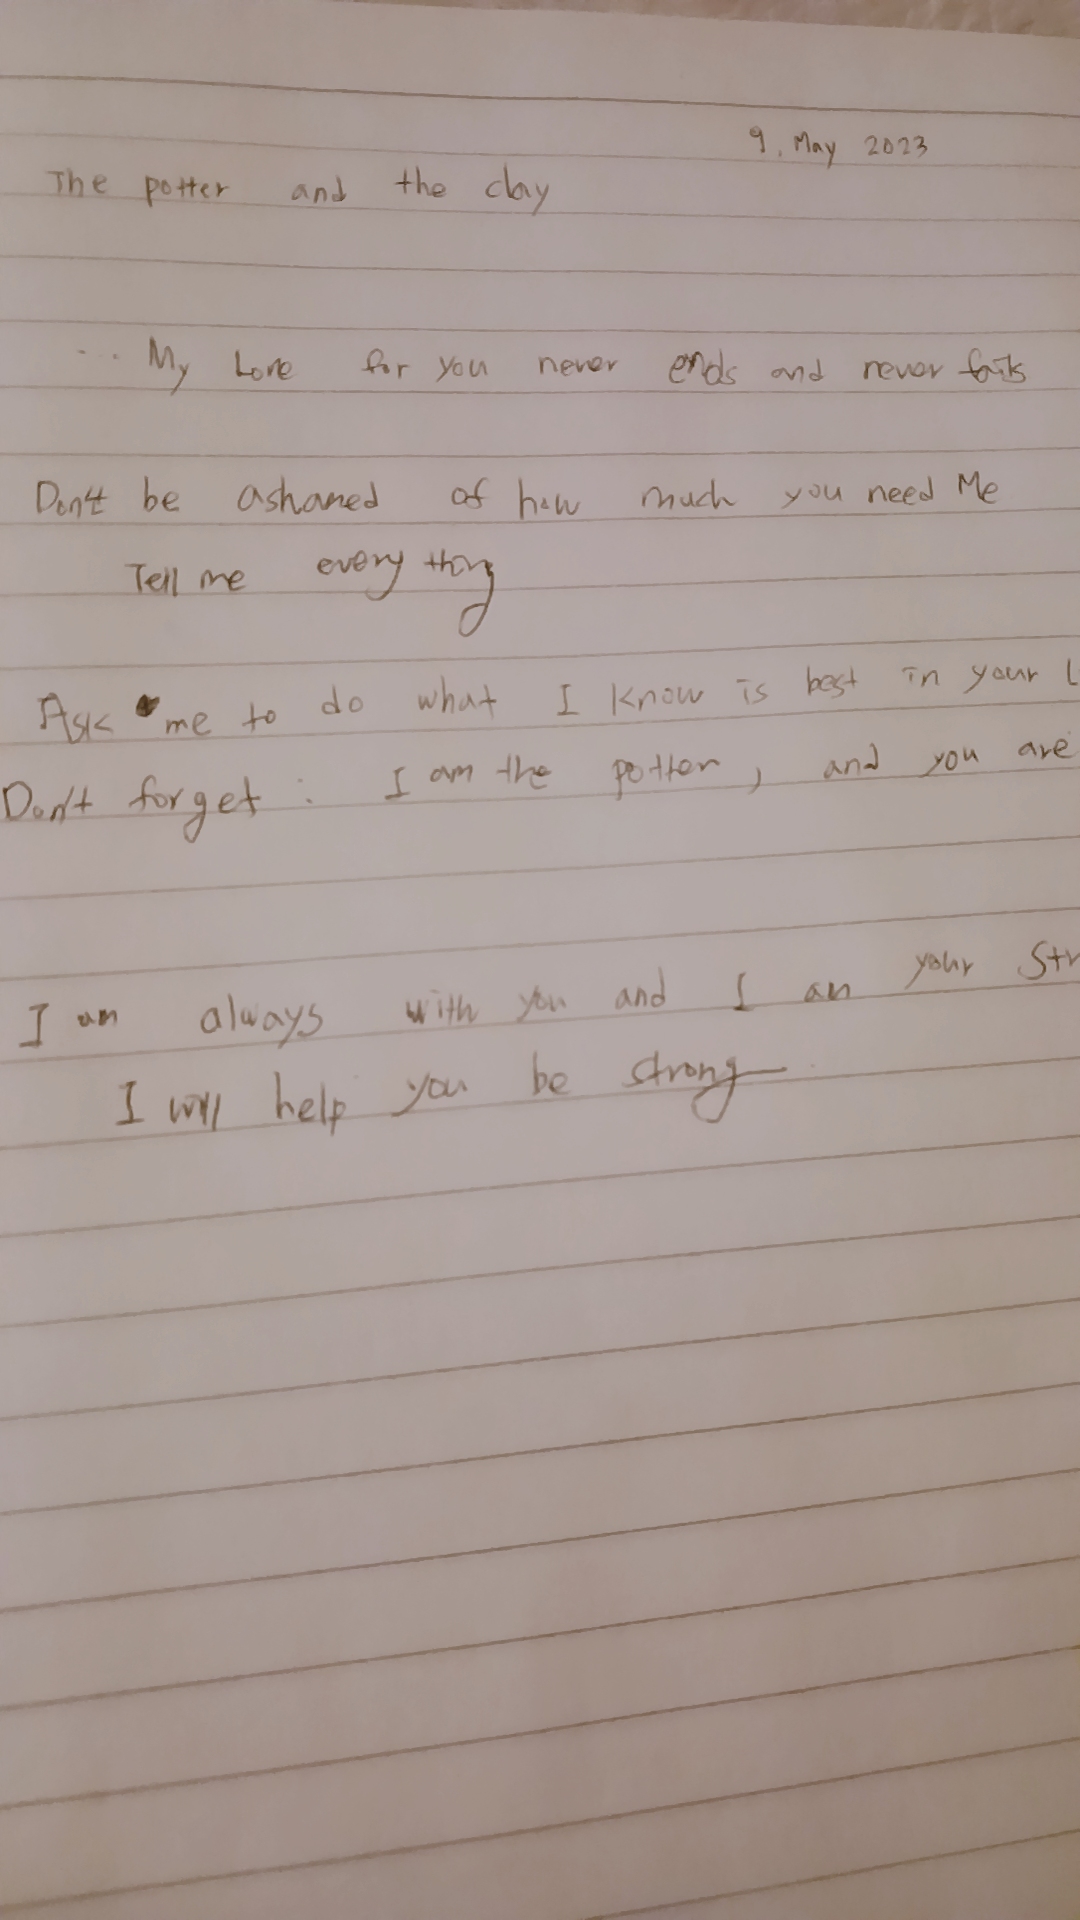 9. May 2023
The potter and the clay
... My Love for you never ends and never fails
Don't be ashamed of how much you need Me
Tell me every thing
Ask me to do what I know is best in your L
Don't forget : I am the potter, and you are
I am always with you and I am your Str
I will help you be strong